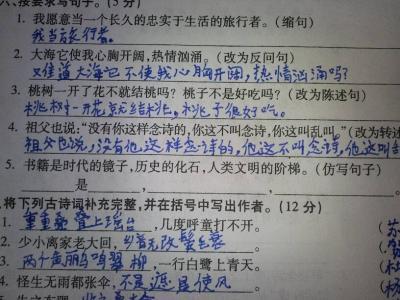 六、按要求写句子。(5分)
1. 我愿意当一个长久的忠实于生活的旅行者。(缩句)
我当旅行者。
2. 大海它使我心胸开阔,热情汹涌。(改为反问句)
难道大海它不使我心胸开阔,热情汹涌吗?
3. 桃树一开了花不就结桃吗? 桃子不是好吃吗?(改为陈述句)
桃树一开花就结桃,桃子很好吃。
4. 祖父也说:“没有你这样念诗的,你这不叫念诗,你这叫乱叫。”(改为转述
祖父也说,没有他这样念诗的,他这不叫念诗,他这叫
5. 书籍是时代的镜子,历史的化石,人类文明的阶梯。(仿写句子)
是 , , 。
将下列古诗词补充完整,并在括号中写出作者。(12分)
1. 重重叠叠上瑶台,几度呼童打不开。
2. 少小离家老大回,乡音无改鬓毛衰。
3. 两个黄鹂鸣翠柳,一行白鹭上青天。
4. 怪生无雨都张伞,不是遮 是使风。